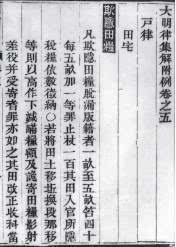 大明律集解附例卷之五
戶律
田宅
欺隱田糧
凡欺隱田糧脫漏版籍者一畝至五畝笞四十
每五畝加一等罪止杖一百其田入官所隱
稅糧依數徵納○若將田土移坵換段那移
等則以高作下減瞞糧額及詭寄田糧影射
差役并受寄者罪亦如之其田改正收科當